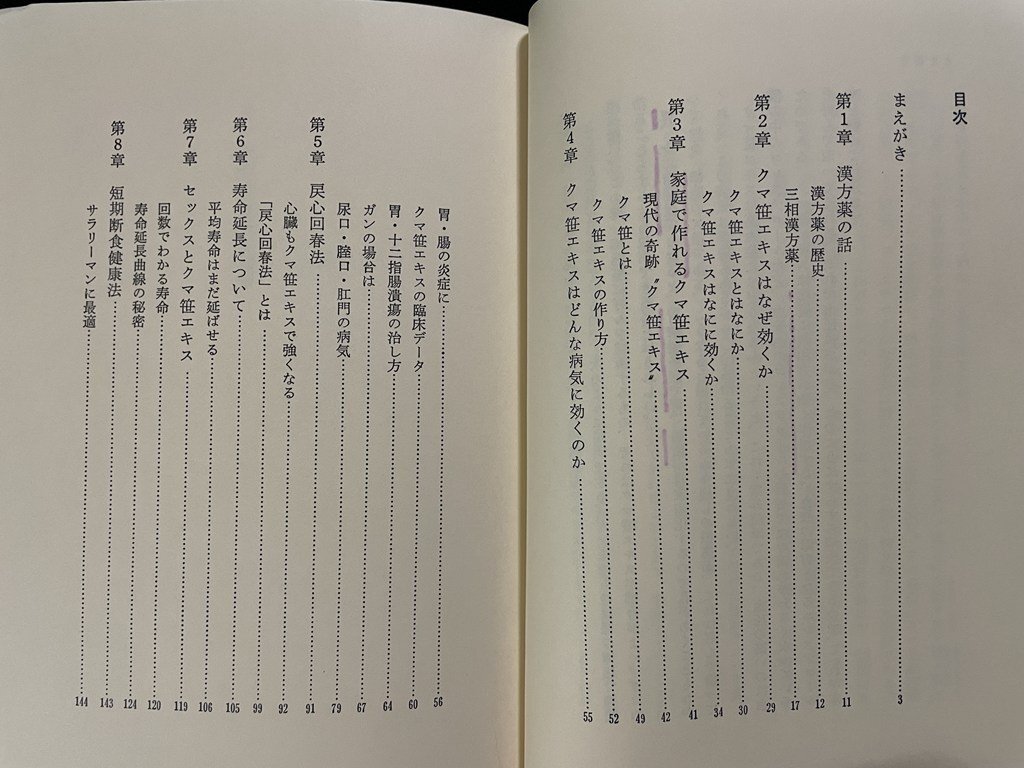 目次
まえがき……3
第1章 漢方薬の話……11
漢方薬の歴史……12
三相漢方薬……17
第2章 クマ笹エキスはなぜ効くか……29
クマ笹エキスとはなにか……30
クマ笹エキスはなにに効くか……34
第3章 家庭で作れるクマ笹エキス……41
現代の奇跡〝クマ笹エキス〟……42
クマ笹とは……49
クマ笹エキスの作り方……52
第4章 クマ笹エキスはどんな病気に効くのか……55
胃・腸の炎症に……56
クマ笹エキスの臨床データ……60
胃・十二指腸潰瘍の治し方……64
ガンの場合は……67
尿口・膣口・肛門の病気……79
第5章 戻心回春法……91
心臓もクマ笹エキスで強くなる……92
「戻心回春法」とは……99
第6章 寿命延長について……105
平均寿命はまだ延ばせる……106
第7章 セックスとクマ笹エキス……119
回数でわかる寿命……120
寿命延長曲線の秘密……124
第8章 短期断食健康法……143
サラリーマンに最適……144